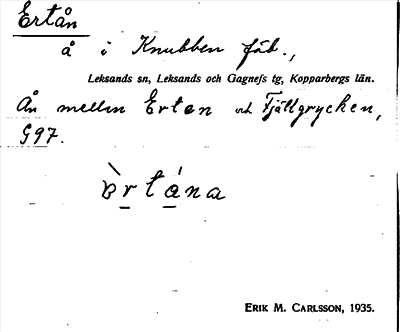 Ertån
å i Knubben fäb.,
Leksands sn, Leksands och Gagnefs tg, Kopparbergs län.
Ån mellan Erten och Fjällgrycken,
G97.
ærtana
ERIK M. CARLSSON, 1935.